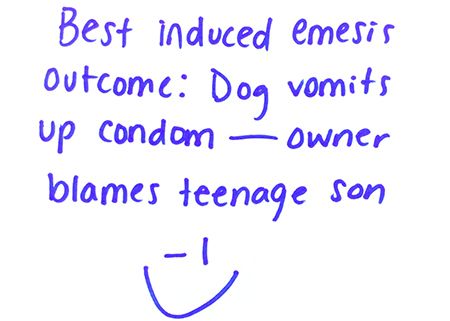 Best induced emesis
outcome: Dog vomits
up condom — owner
blames teenage son